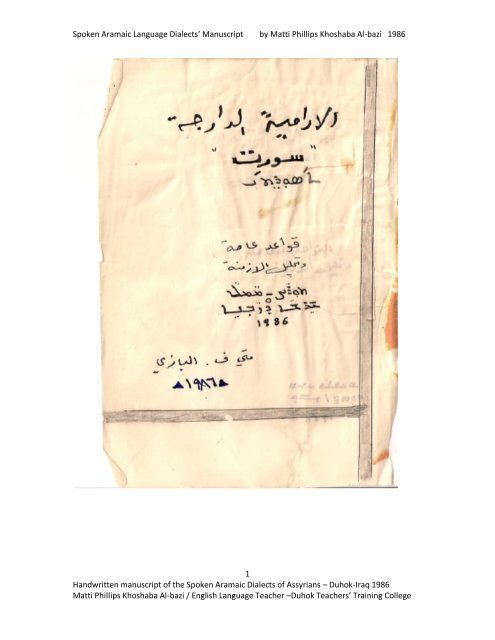 Spoken Aramaic Language Dialects’ Manuscript by Matti Phillips Khoshaba Al-bazi 1986
الارامية الدارجة
"سورث"
قواعد عامة
وتحليل الازمنة
1986
متي ف. البازي
١٩٨٦
1
Handwritten manuscript of the Spoken Aramaic Dialects of Assyrians – Duhok-Iraq 1986
Matti Phillips Khoshaba Al-bazi / English Language Teacher –Duhok Teachers’ Training College